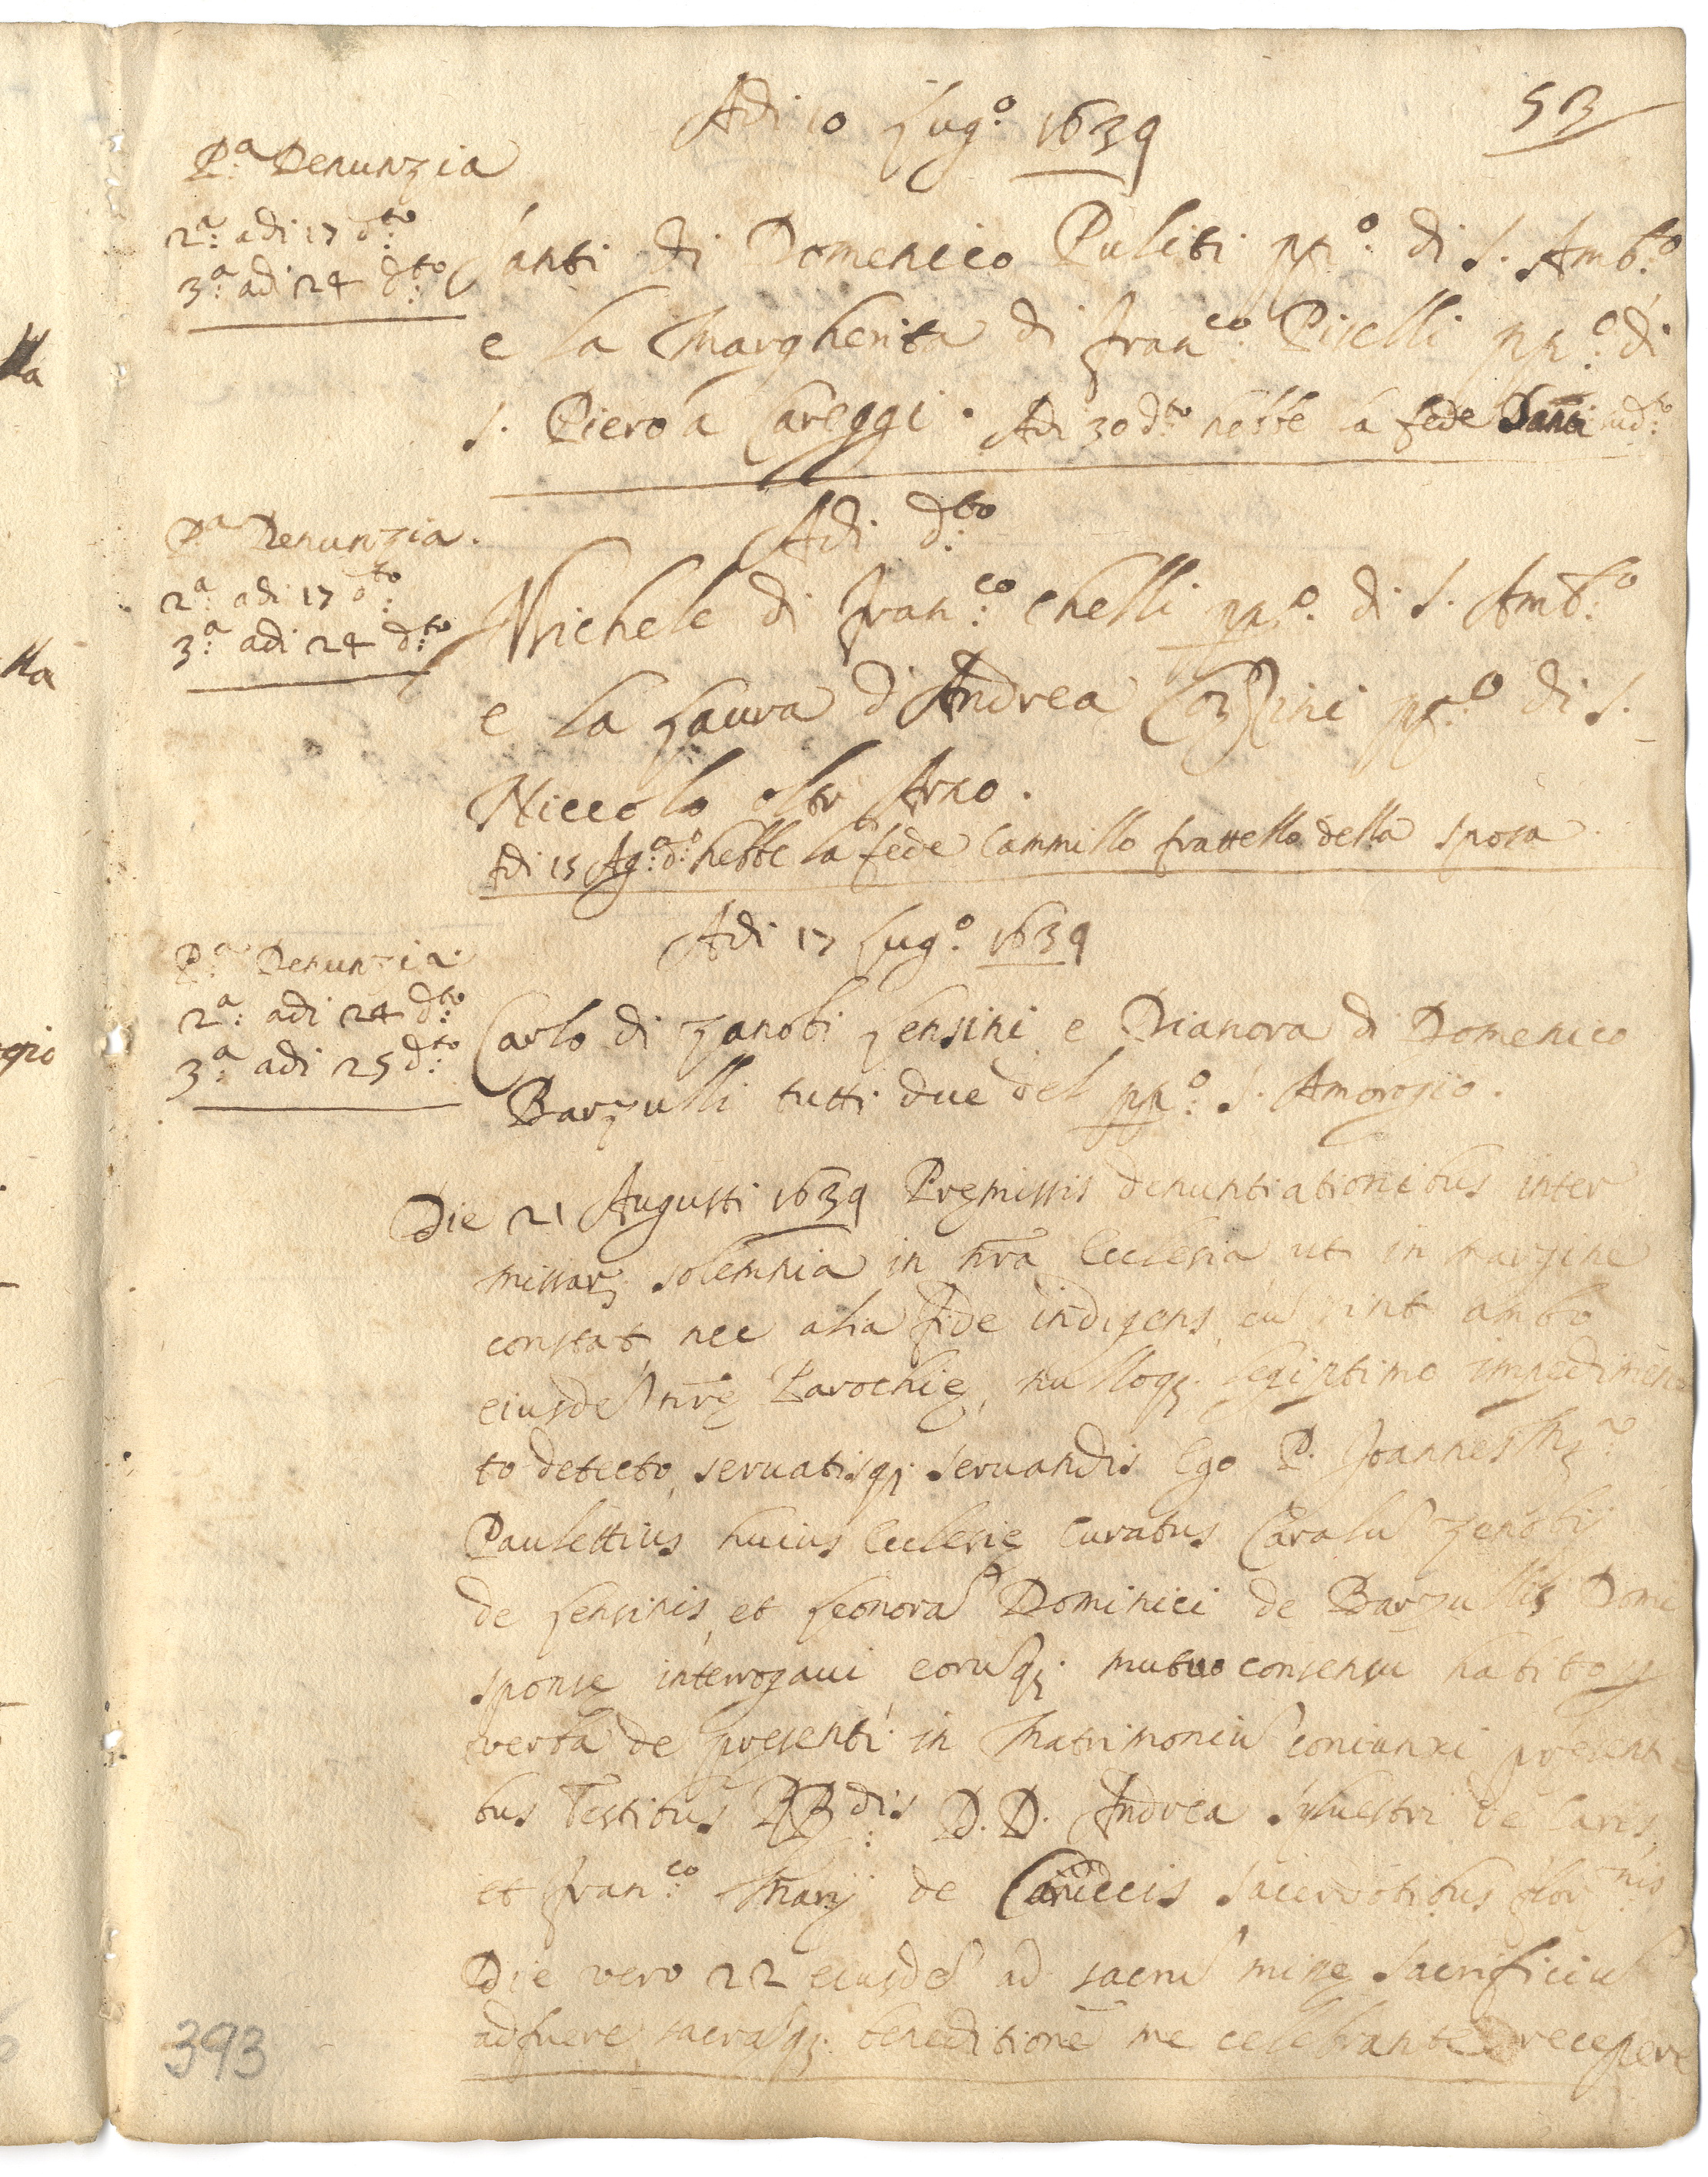 53
Adi 10 Lug.o 1639
P.a Denunzia
2.a adi 17 d.to
3.a adi 24 d.to
Santi di Domenico Puliti pp.o di S. Amb.o
e la Margherita di Fran.co Piselli pp.o di
S. Piero a Careggi. Adi 30 d.to hebbe la fede Santi sud.to
Adi d.to
P.a Denunzia.
2.a adi 17 d.to
3.a adi 24 d.to
Michele di Fran.co Chelli pp.o di S. Amb.o
e la Laura d'Andrea pp.o di S.
Niccolo oltr'Arno.
Adi 15 Ag.o d.o hebbe la fede Cammillo frattello della sposa
Adi 17 Lug.o 1639
P.a Denunzia
2.a adi 24 d.to
3.a adi 25 d.to
Carlo di Zanobi Lensini e Dianora di Domenico
Barzulli tutti due del pp.o S. Amorogio.
Die 21 Augusti 1639 Premissis denuntiationibus inter
missarq solemnia in nra Ecclesia ut in margine
constat nec alia fide indigens, cu sint ambo
eiusde nre Parochie, nulloq; legiptimo impedimen
to detecto, servatisq; servandis Ego P. Joannes
Paulettius huius Ecclesie Curatus Caralu Zenobij
de Lensinis, et Leonora Dominici de Barzullis
sponse interrogaui eoruq; mutuo consensu habito p
verba de presenti in Matrimoniu coniunxi present
bus Testibus RR.dis D.D. Andrea Silvestri de Caris
et Fran.co Marij de sacerdotibus flor.nis
Die vero 22 eiusde ad sacru misse Sacrificiu
adfuere, sacraq; beneditione me celebrante recepere
393